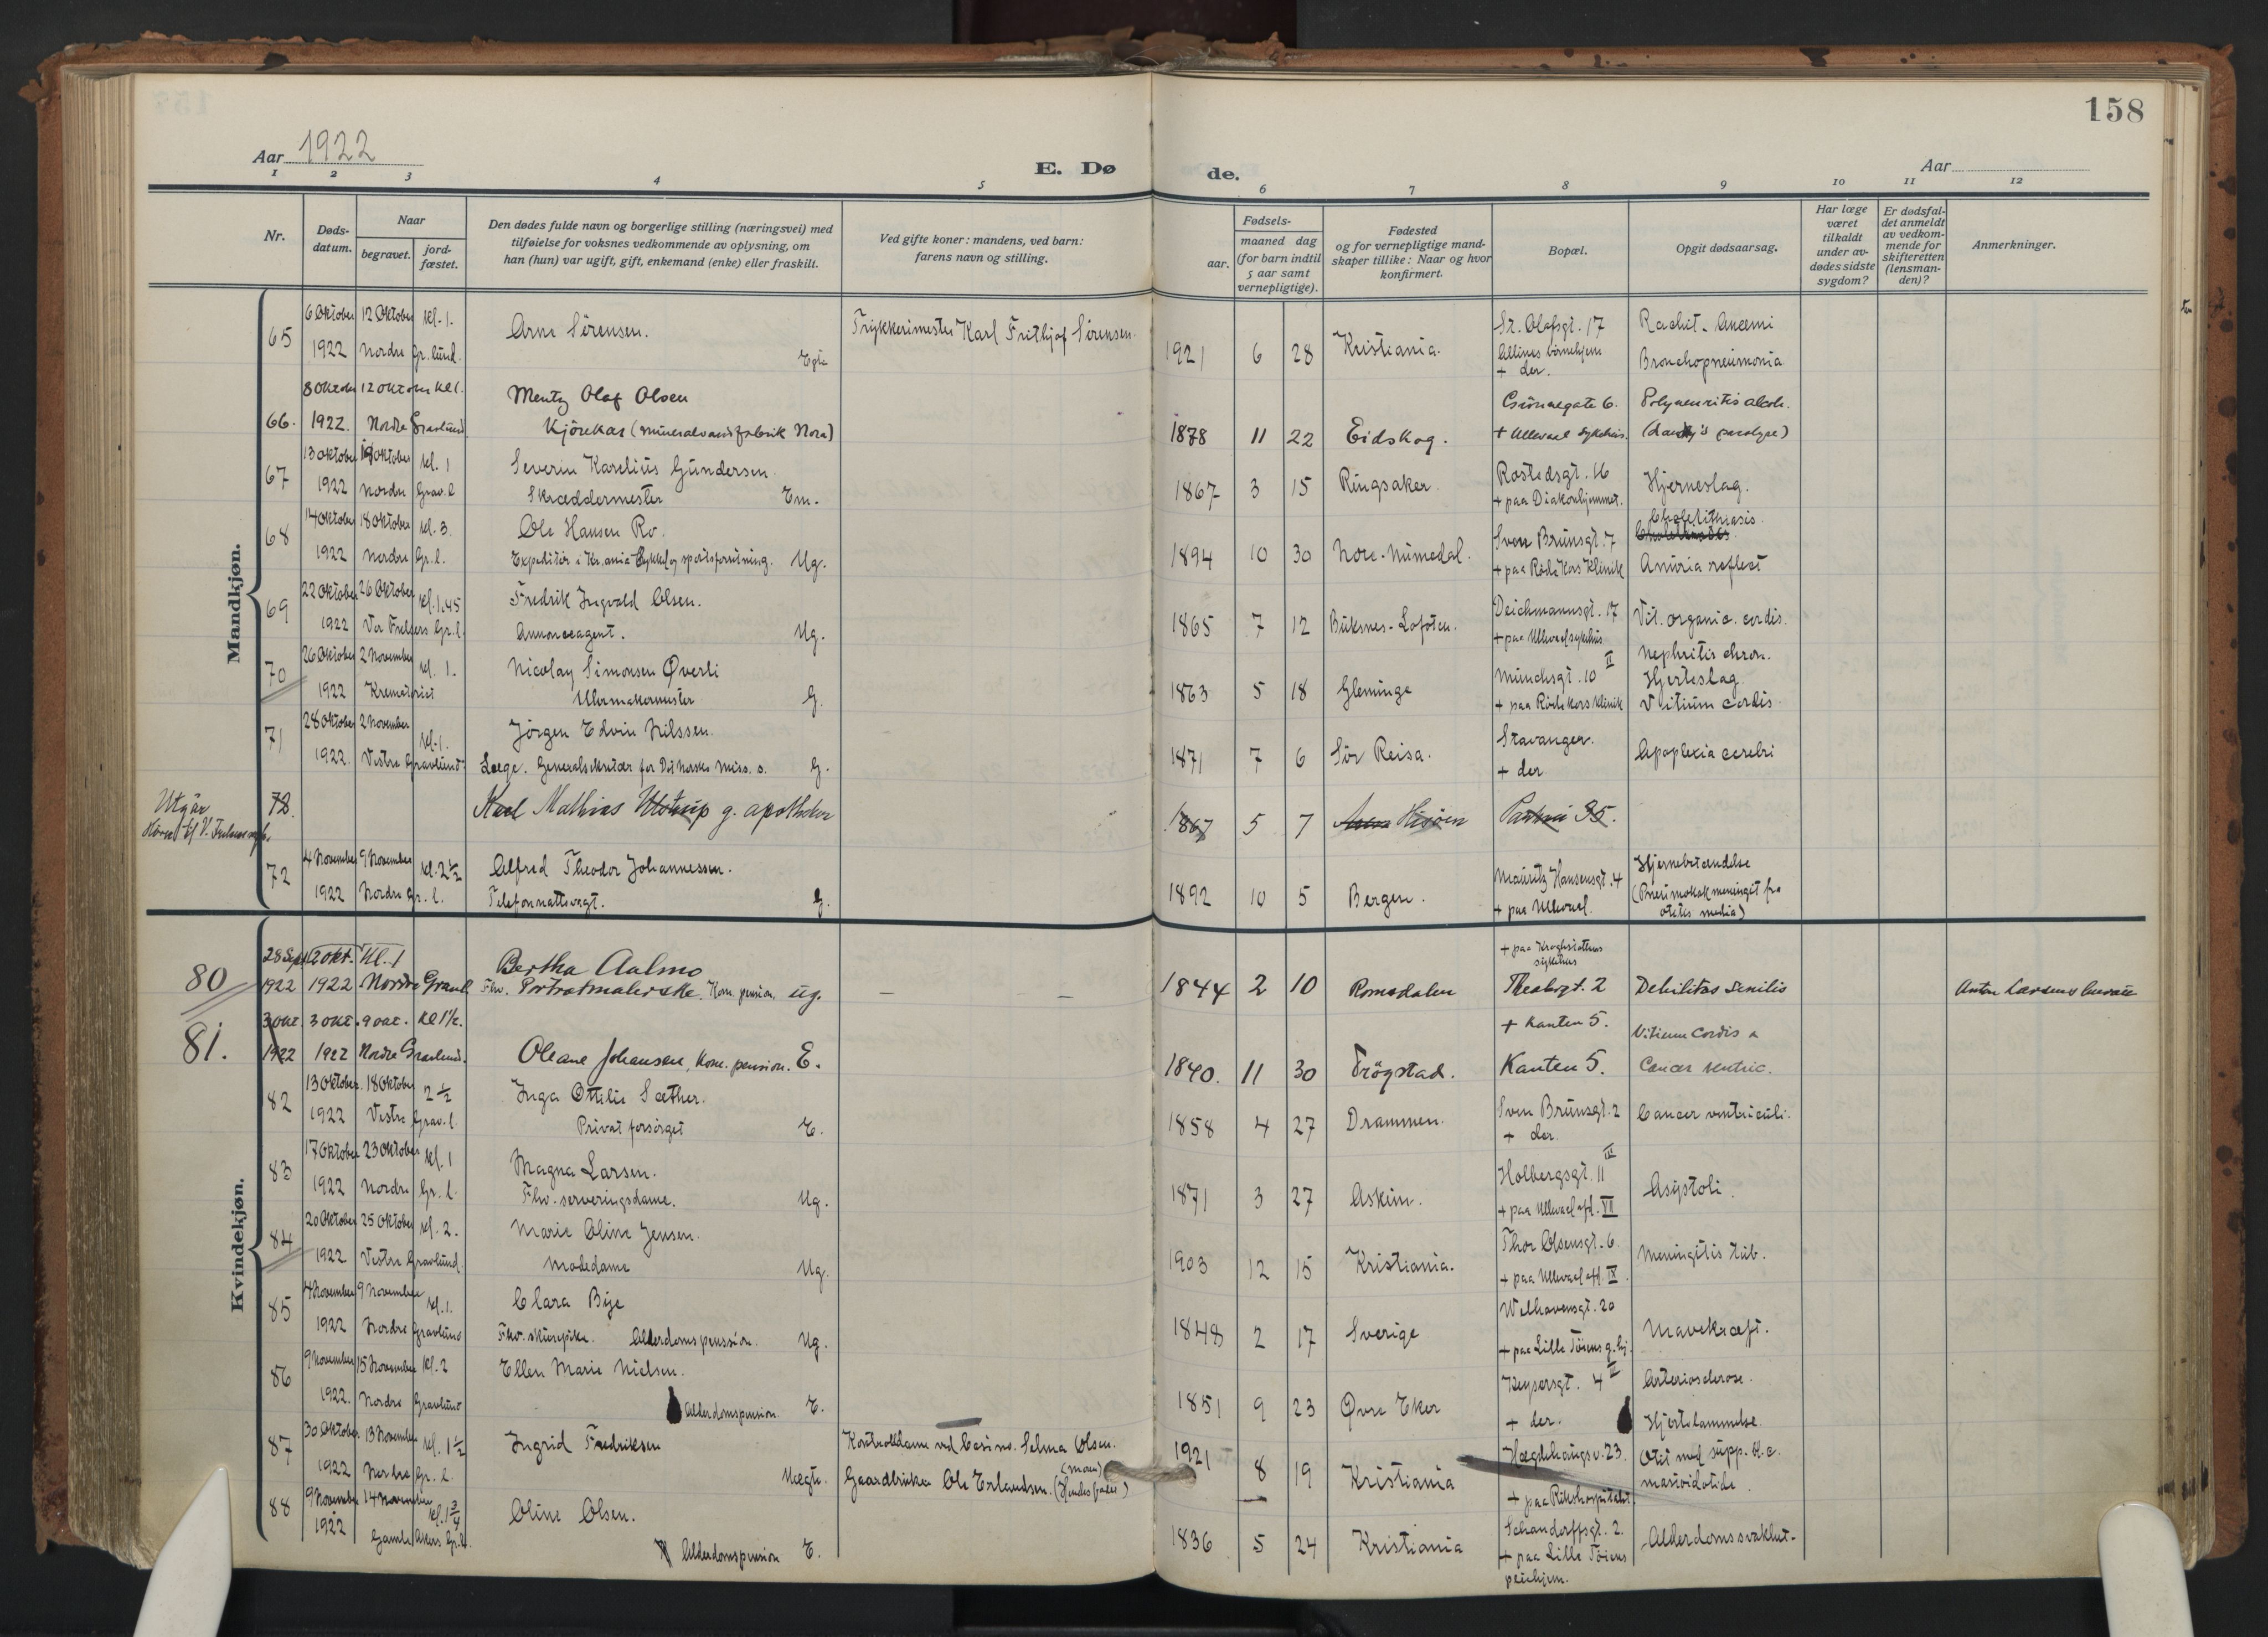 158
Aar 1922
E. Dø
de.
Aar
1 2 3 4 5 6 7 8 9 10 11 12
Nr.
Døds-
datum.
Naar
begravet.
jord-
fæstet.
Den dødes fulde navn og borgerlige stilling (næringsvei) med
tilføielse for voksnes vedkommende av oplysning, om
han (hun) var ugift, gift, enkemand (enke) eller fraskilt.
Ved gifte koner: mandens, ved barn:
farens navn og stilling.
Fødsels-
aar.
maaned dag
(for barn indtil
5 aar samt
vernepligtige).
Fødested
og for vernepligtige mand-
skaper tillike: Naar og hvor
konfirmert.
Bopæl.
Opgit dødsaarsag.
Har læge
været
tilkaldt
under av-
dødes sidste
sygdom?
Er dødsfal-
det anmeldt
av vedkom-
mende for
skifteretten
(lensman-
den)?
Anmerkninger.
Mandkjøn.
65 6 Oktober 1922 12 Oktober Kl. 1. Nordre Gr.lund.
Arne Sörensen. Egte
Trykkerimester Karl Frithjof Sörensen.
1921 6 28 Kristiania.
St. Olafsgt. 17
+ der.
Rachit. Anemi
Bronchopneumonia
66. 8 Oktober 1922. 12 Oktober Kl 1. Nordre Gravlund
Mentz Olaf Olsen
Kjörekar (mineralvandsfabrik Nora)
1878 11 22 Eidskog.
+ Ullevaal sykehus.
Polyneuritis alcoh.
67 13 Oktober 1922 Oktober Kl. 1 Nordre Grav.l
Severin Karelius Gundersen.
Skræddermester Em.
1867 3 15 Ringsaker.
Rostedsgt. 16
+ paa Diakonhjemmet.
Hjerneslag.
68 14 Oktober 1922 18 Oktober Kl. 3. Nordre Gr.l.
Ole Hansen Ro.
Expeditör i Kr.ania Cykkel og sportsforretning. Ug.
1894 10 30 Nore - Numedal.
Sven Brunsgt. 7
+ paa Röde Kors Klinik
Cholelithiasis.
Anuria reflect
69 22 Oktober 1922 26 Oktober Kl. 1.45 Vor Frelsers Gr.l.
Fredrik Ingvald Olsen.
Annonceagent. Ug.
1865 7 12 Buksnes - Lofoten.
Deichmannsgt. 17
+ paa Ullevaal sykehus
Vit. organic. cordis.
Nephritis chron.
70 26 Oktober 1922 2 November Kl. 1. Krematoriet
Nicolay Simonsen Øverli
Uhrmakermester G.
1863 5 18 Gleminge
Munchsgt. 10 II
+ paa Röde Kors Klinik
Hjerteslag.
Vitium cordis.
71 28 Oktober 1922. 2 November Kl. 1. Vestre Gravlund.
Jörgen Edvin Nilssen.
Læge. Generalsekretær for Det Norske Miss. s. G.
1871 7 6 Sör Reisa.
Stavanger.
+ der
Apoplexia cerebri
Utgår
72.
Karl Mathias Utstrup g. apotheker
1867 5 7 Hisöen
35.
72 4 November 1922 9 November Kl. 2 1/2 Nordre Gr. l.
Alfred Theodor Johannessen.
Telefonnattevagt. G.
1892 10 5 Bergen.
Mauritz Hansensgt. 4
+ paa Ullevaal.
Hjernebetændelse
(Pneumokok meningit fra
otitis media)
Kvindekjøn.
80 28 Sept 1922 2 Okt. 1922 Kl. 1 Nordre Gravl.
Bertha Aalmo
Fhv. Portrætmalerske. Kom. pension. ug.
— —
1844 2 10 Romsdalen
+ paa Kroghstøttens sykehus
Theatergt. 2
Debilitas Senilis
81. 3 Okt. 1922 3 Okt. 1922 9 Okt. Kl 1 1/2. Nordre Gravlund.
Oleane Johansen, Kom. pension. E.
1840. 11 30 Trögstad.
+ Kanten 5.
Kanten 5.
Vitium Cordis &
Cancer ventric.
82 13 Oktober 1922 18 Oktober 2 1/2 Vestre Grav.l.
Inga Ottilie Sæther.
Privat forsörget E.
1858 4 27 Drammen.
Sven Brunsgt. 2
+ der.
Cancer ventriculi.
83 17 Oktober 1922 23 Oktober Kl. 1 Nordre Gr. l.
Magna Larsen.
Fhv. serveringsdame. Ug.
1871 3 27 Askim.
Holbergsgt. 11 III
+ paa Ullevaal afd. VII
Asystoli.
84 20 Oktober 1922 25 Oktober Kl. 2. Vestre Gravlund.
Marie Oline Jensen.
Modedame Ug.
1903 12 15 Kristiania.
Thor Olsensgt. 6.
+ paa Ullevaal afd. IX.
Meningitis tub.
85 4 November 1922 9 November Kl. 1. Nordre Gravlund
Clara Bije
Fhv. skurepike. Alderdomspenssion. Ug.
1848 2 17 Sverige
Welhavensgt. 20
+ paa Lille Töiens g.hj.
Mavekræft.
86 9 November 1922. 15 November Kl. 2 Nordre Gravlund
Ellen Marie Nielsen.
Alderdomspension E.
1851 9 23 Øvre Eker
Keysersgt. 4 II
+ der.
Arteriosclerose.
Hjertelammelse.
87 30 Oktober 1922 13 November Kl. 1 1/2 Nordre Gr. l.
Ingrid Fredriksen Uægte.
Kontroldame ved Casino. Selma Olsen. (mor)
Gaardbruker Ole Erlandsen. (Hendes fader)
1921 8 19 Kristiania
Hægdehaugsv. 23.
+ paa Rikshospitalet.
Otit med supp. K. c.
mastoidotide.
88 9 November 1922 14 November Kl. 1 3/4 Gamle Akers Gr.l.
Oline Olsen.
Alderdomspension E.
1836 5 24 Kristiania
Schandorffsgt. 2.
+ paa Lille Töiens
pleiehjem.
Alderdomssvakhet.